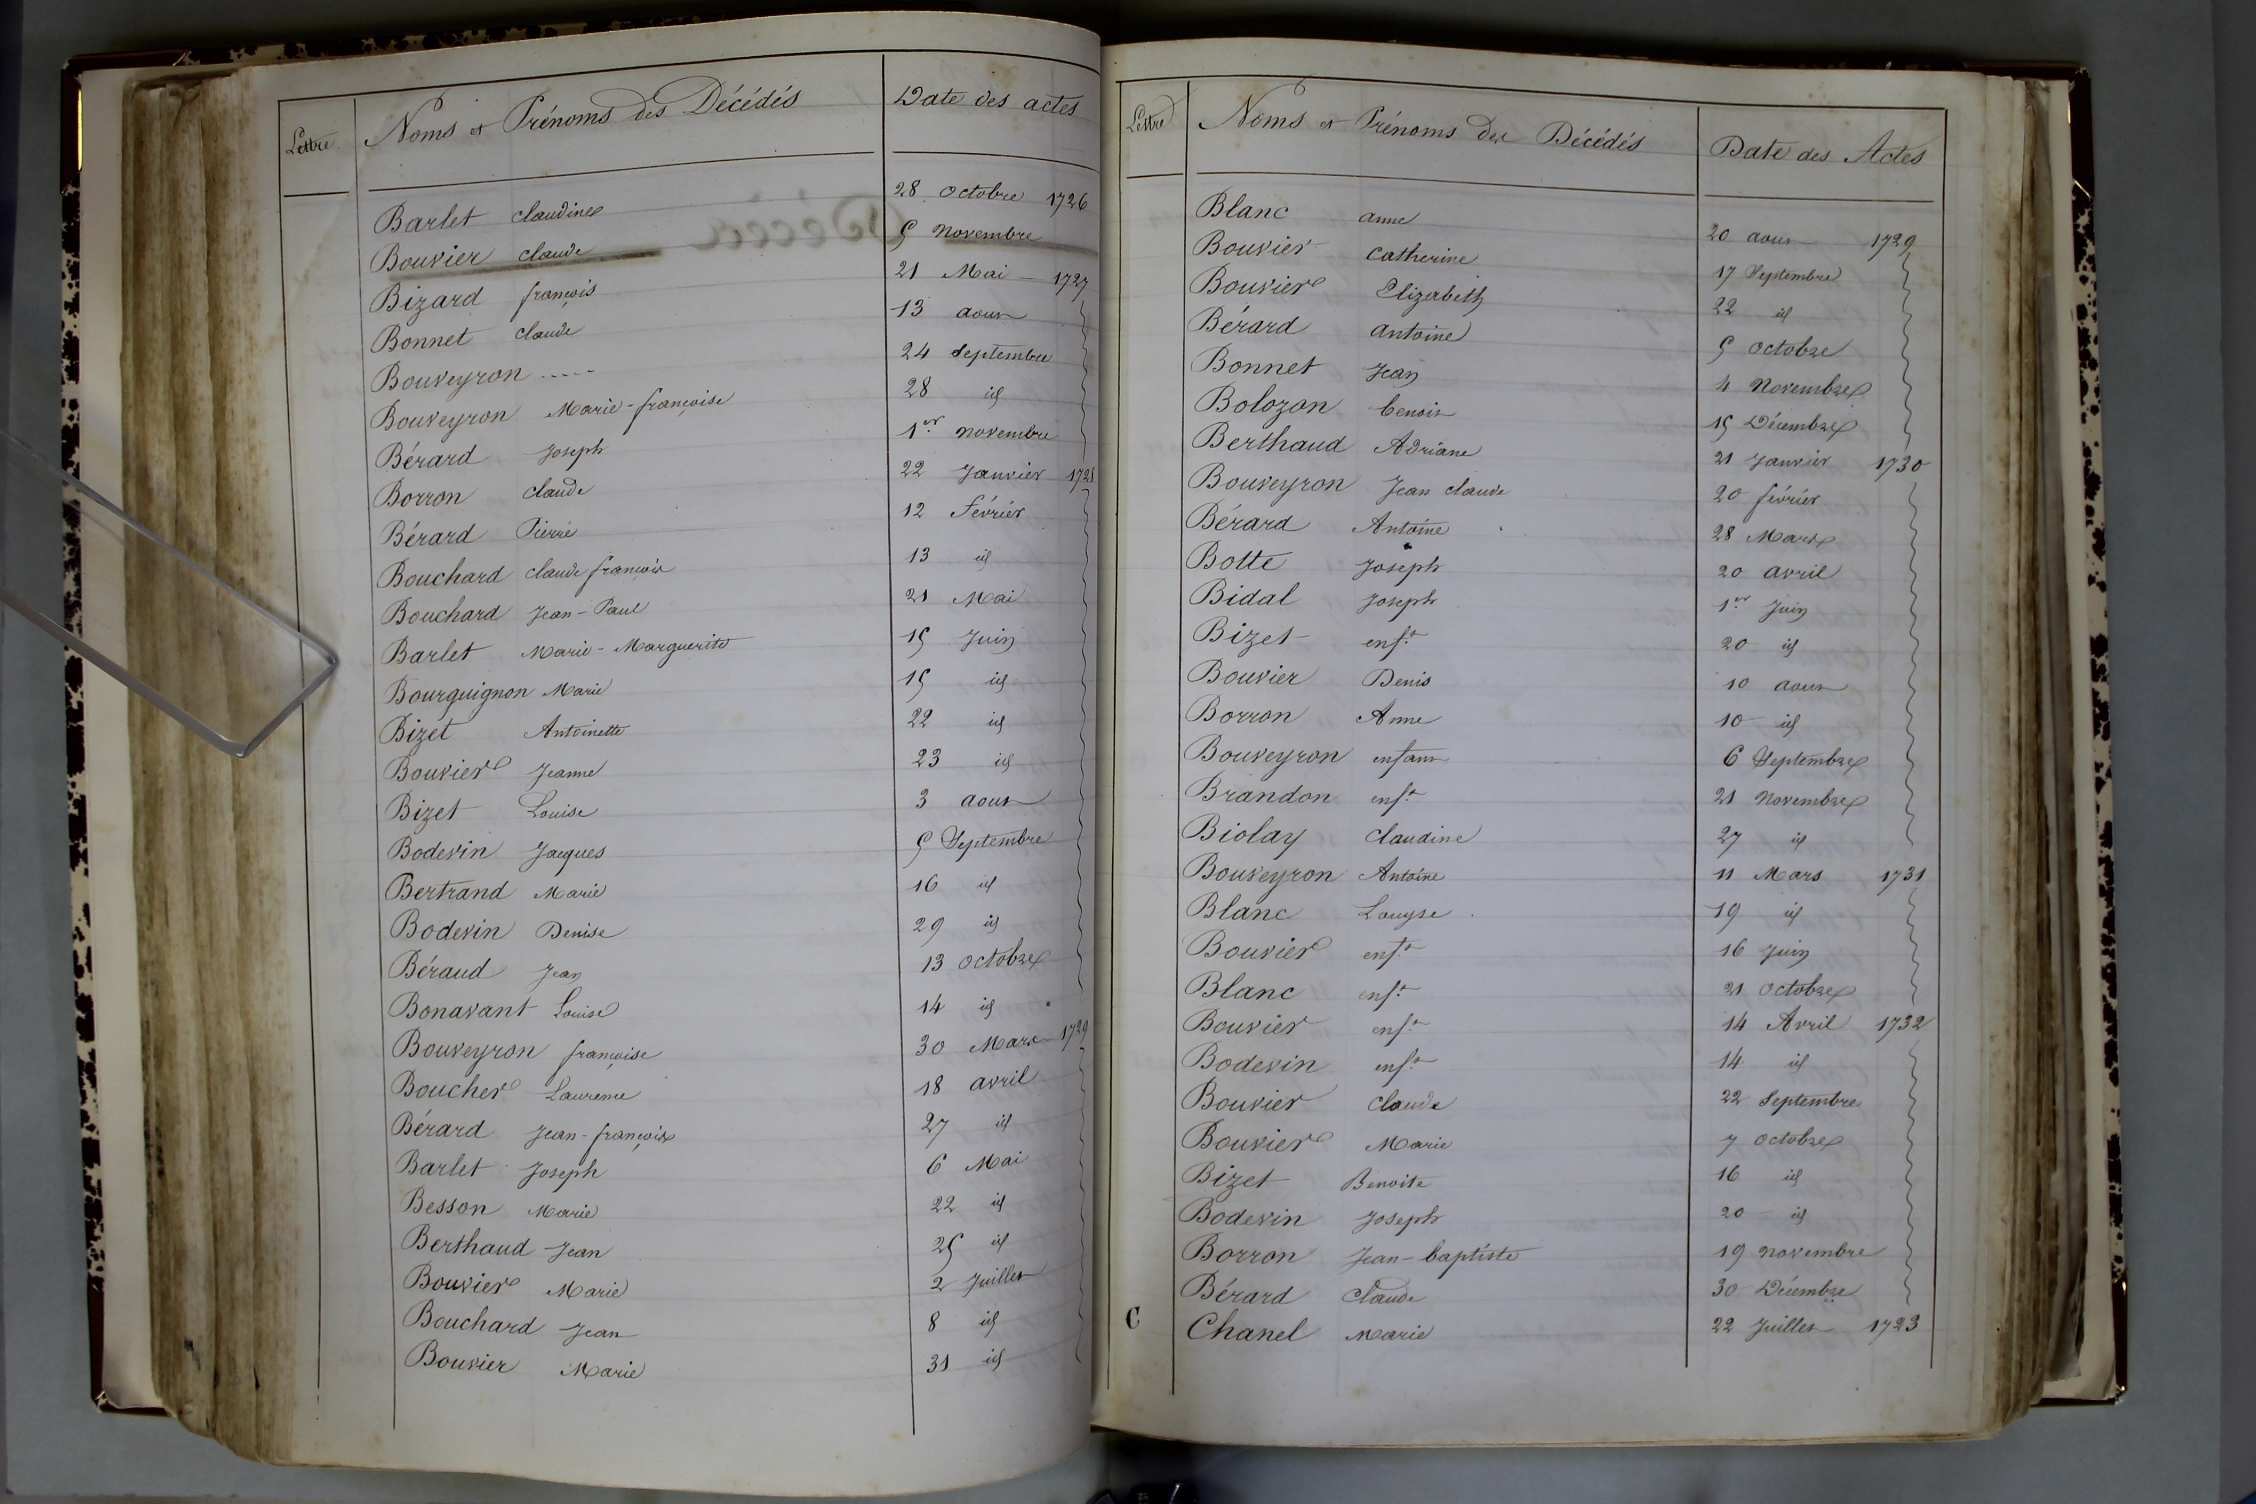 Lettre Noms et Prénoms des Décédés Date des actes
Barlet Claudine 28 Octobre 1726
Bouvier Claude 5 Novembre
Bizard françois 21 Mai 1727
Bonnet Claude 13 aout
Bouveyron ..... 24 Septembre
Bouveyron Marie-françoise 28 id
Bérard Joseph 1er novembre
Borron Claude 22 Janvier 1728
Bérard Pierre 12 Février
Bouchard Claude françois 13 id
Bouchard Jean-Paul 21 Mai
Barlet Marie-Marguerite 15 Juin
Bourguignon Marie 15 id
Bizet Antoinette 22 id
Bouvier Jeanne 23 id
Bizet Louise 3 aout
Bodevin Jacques 5 Septembre
Bertrand Marie 16 id
Bodevin Denise 29 id
Béraud Jean 13 Octobre
Bonavant Louise 14 id
Bouveyron françoise 30 Mars 1729
Boucher Laurence 18 avril
Bérard Jean-françois 27 id
Barlet Joseph 6 Mai
Besson Marie 22 id
Berthaud Jean 25 id
Bouvier Marie 2 Juillet
Bouchard Jean 8 id
Bouvier Marie 31 id
Lettre Noms et Prénoms des Décédés Date des Actes
Blanc anne 20 aout 1729
Bouvier Catherine 17 Septembre
Bouvier Elizabeth 22 id
Bérard antoine 5 Octobre
Bonnet Jean 4 Novembre
Bolozon benoit 15 Décembre
Berthaud Adriane 21 Janvier 1730
Bouveyron Jean Claude 20 février
Bérard Antoine 28 Mars
Botte Joseph 20 avril
Bidal Joseph 1er Juin
Bizet enft 20 id
Bouvier Denis 10 aout
Borron Anne 10 id
Bouveyron enfant 6 Septembre
Brandon enft 21 Novembre
Biolay Claudine 27 id
Bouveyron Antoine 11 Mars 1731
Blanc Louyse 19 id
Bouvier enft 16 Juin
Blanc enft 21 Octobre
Bouvier enft 14 Avril 1732
Bodevin enft 14 id
Bouvier Claude 22 Septembre
Bouvier Marie 7 Octobre
Bizet Benoite 16 id
Bodevin Joseph 20 id
Borron Jean-baptiste 19 novembre
Bérard Claude 30 Décembre
C Chanel Marie 22 Juillet 1723